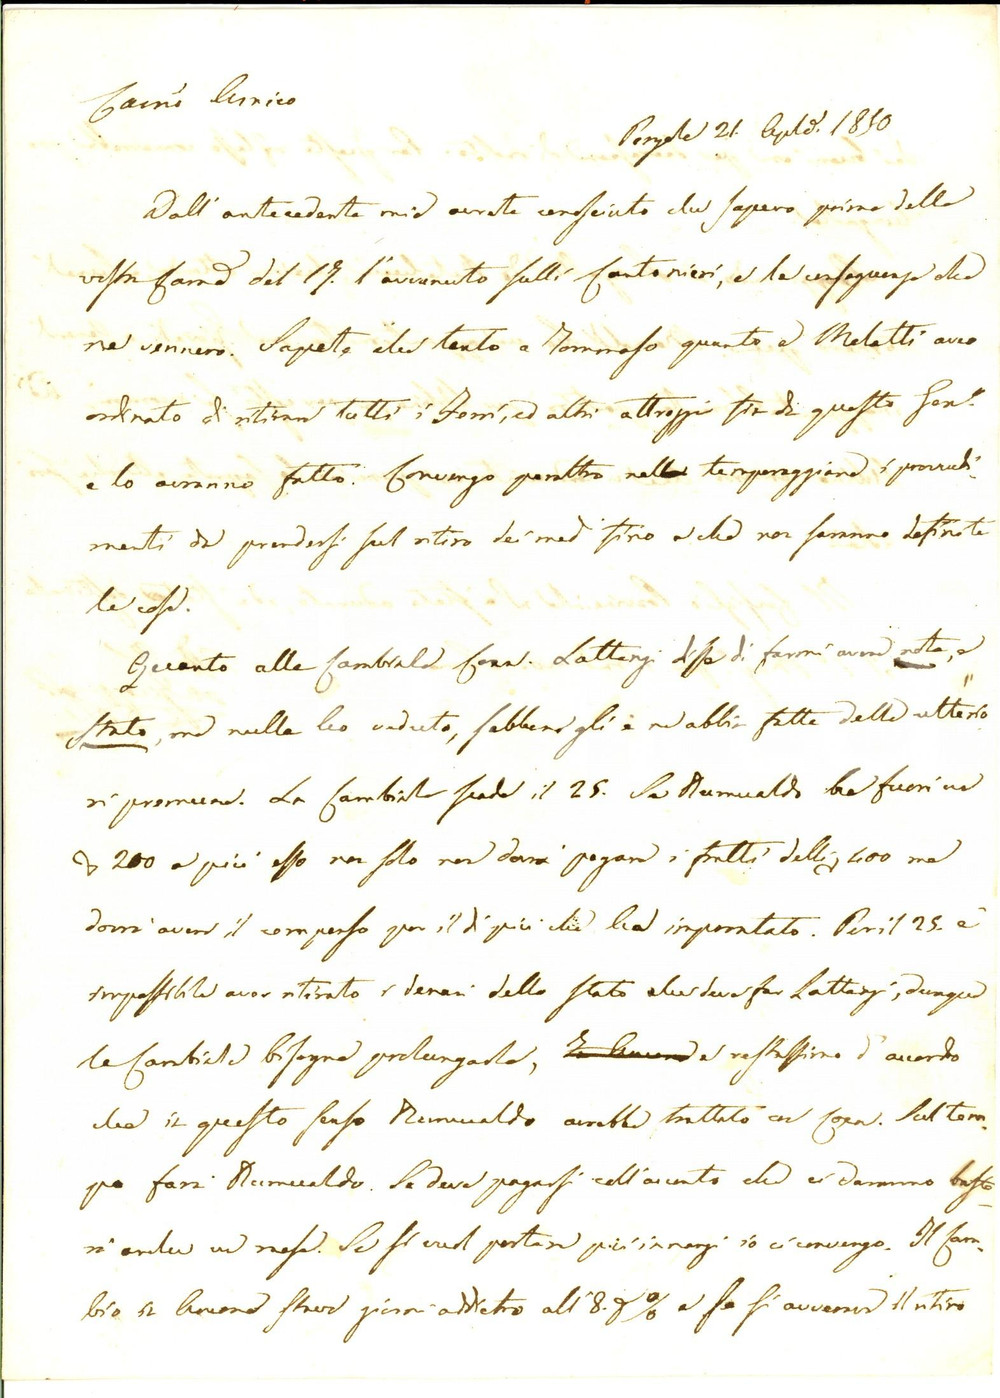 Car.mo Amico
Pergola 21. Aple. 1850
Dall' antecedente mia avrete conosciuto che sapevo prima della
vostra Car.ma del 17. l'avvenuto sulli Cantonieri, e le conseguenze che
ne vennero. Sapete che tanto a Tommaso quanto a Melatti avea
ordinato di ritirare tutti i Ferri, ed altri attrezzi fin da questo Gen.o
e lo avranno fatto. Convengo peraltro nel temporeggiare i provvedi-
menti da prendersi sul ritiro dei med. fino a che non saranno definite
le cose.
Quanto alla Cambiale Lattanzi disse di farmi avere nota, e
stato, ma nulla ho veduto, sebbene gli e ne abbia fatte delle ulterio
ri premure. La Cambiale scade il 25. Se Rumualdo ha fuori
200 e più esso non solo non dovrà pagare i frutti delli 400 ma
dovrà avere il compenso per il di più che ha improntato. Per il 25. è
impossibile aver ritirato i denari dello stato che deve far Lattanzi, dunque
la Cambiale bisogna prolungarla, e restassimo d'accordo
che in questo senso Rumualdo avrebbe trattato con. Sul tem-
po farà Rumualdo. Se deve pagarsi coll'acconto che ci daranno baste-
rà anche un mese. Se si vuol portare più innanzi io ci convengo. Il Cam-
bio in Ancona stava giorni addietro all'8. % e se si avvererà il ritiro